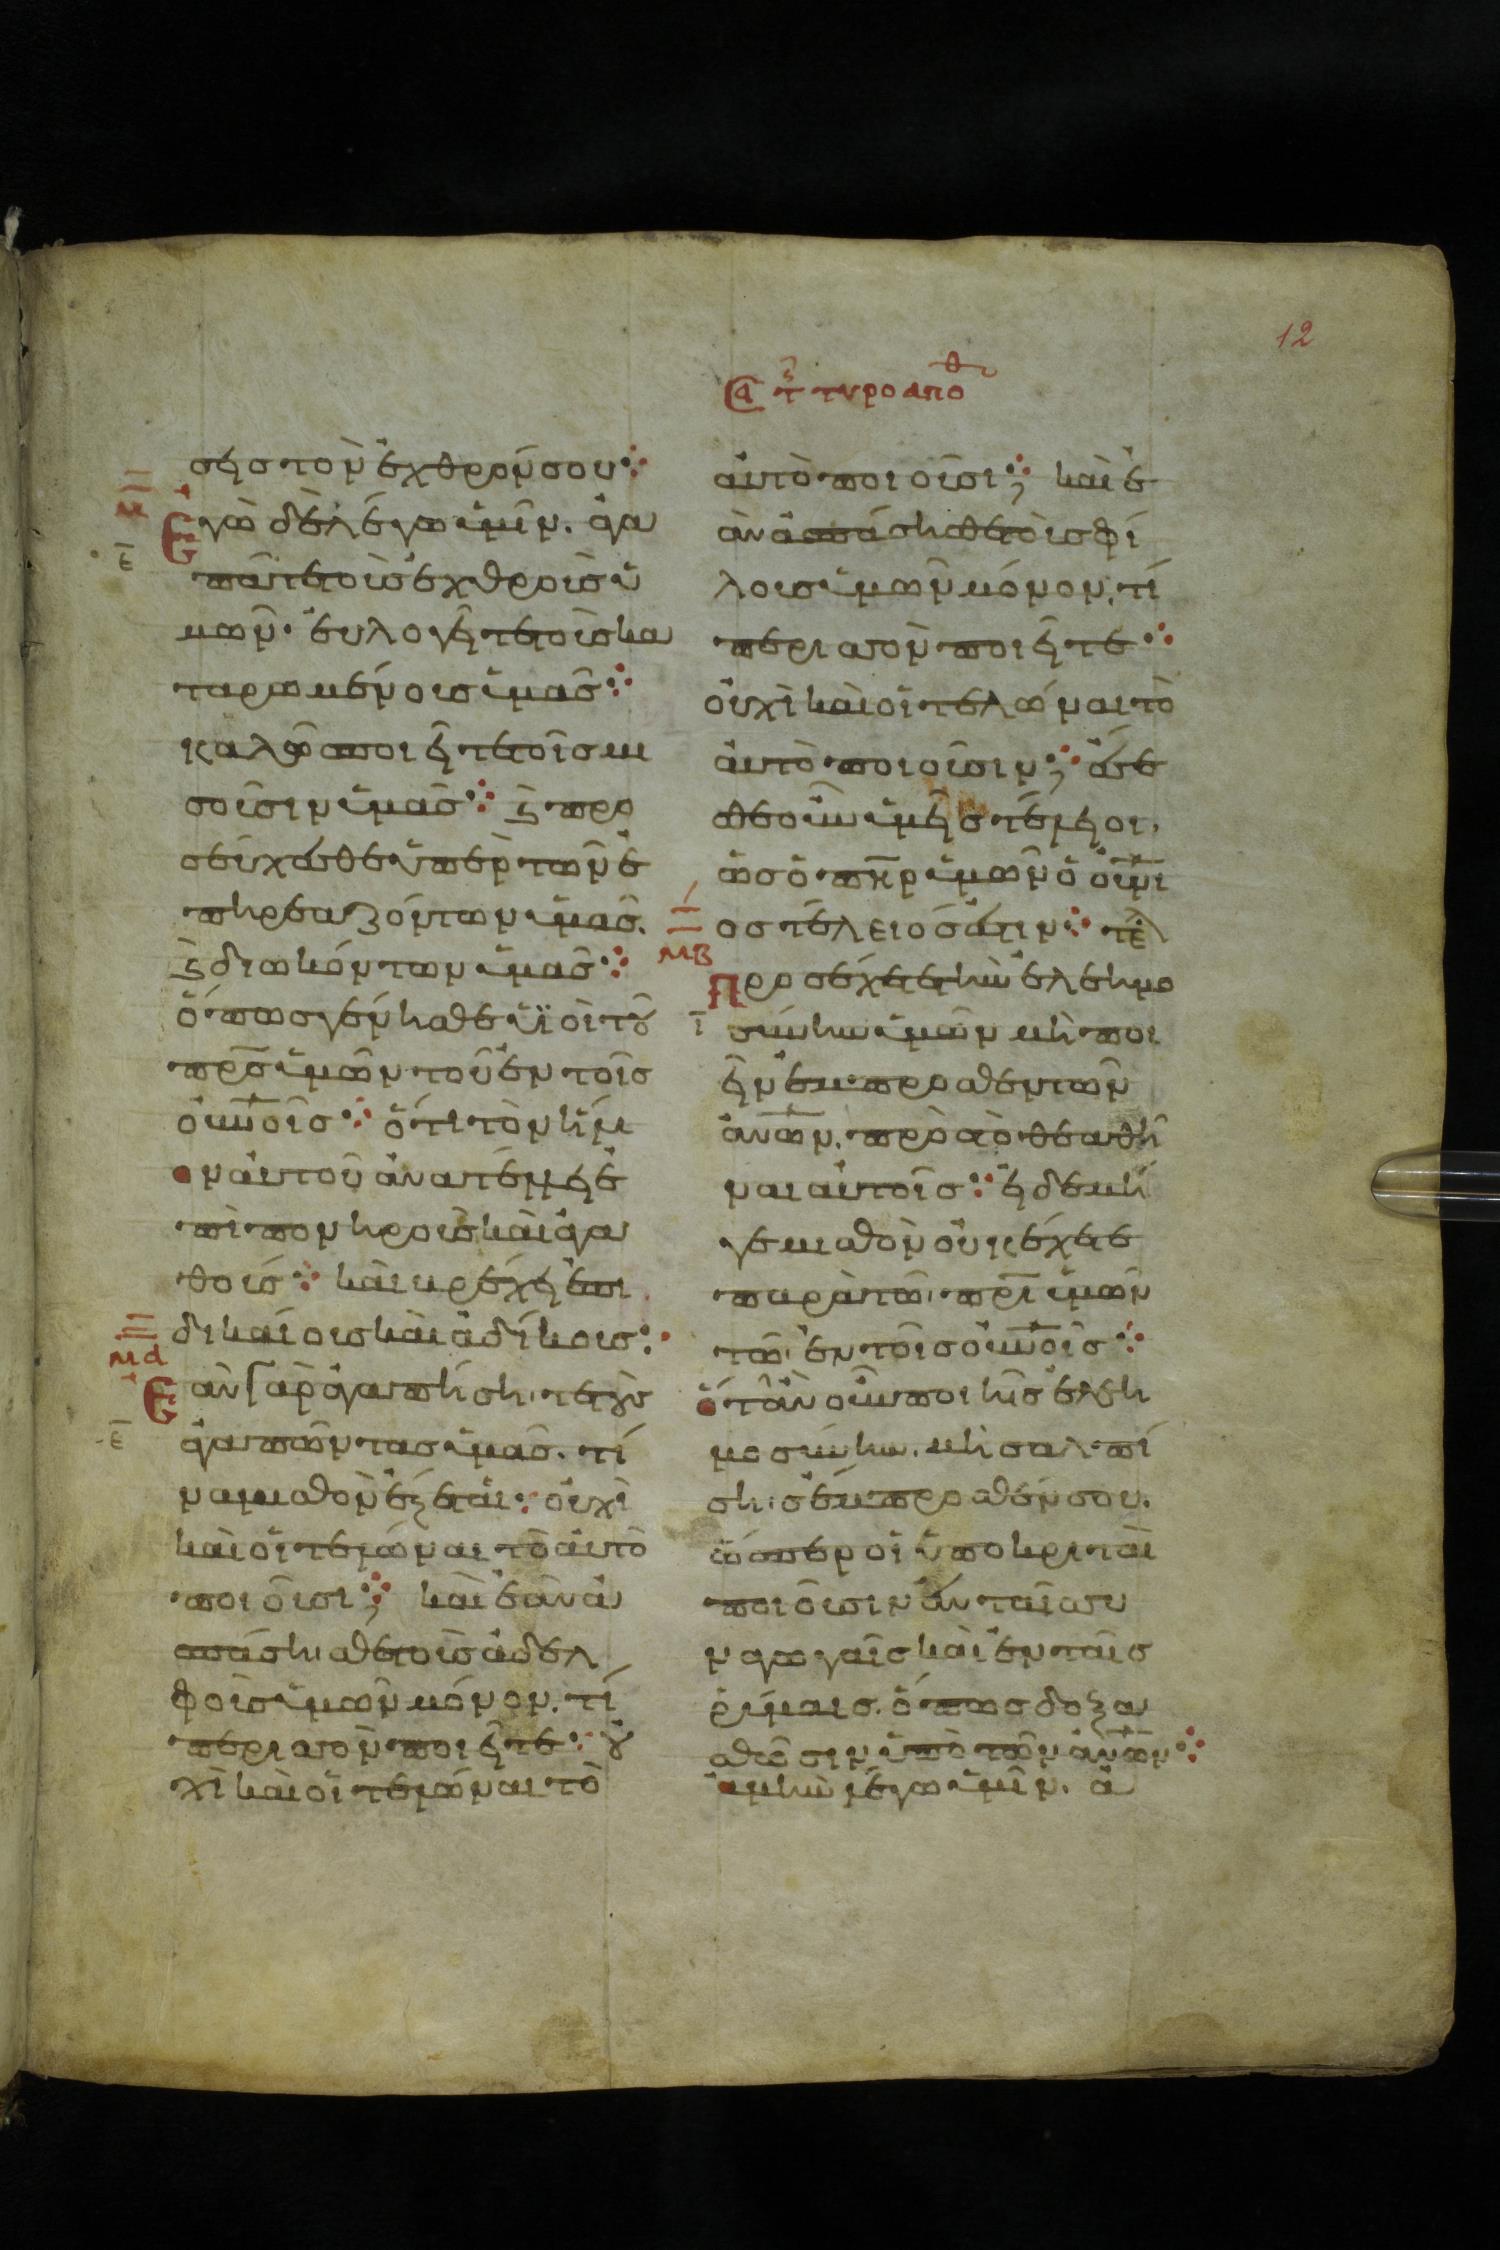 12
Σα τ τυροαποθ
σεις τὸν ἐχθρόν σου
Μ
Ἐγὼ δὲ λέγω ὑμῖν. ἀγα
ε
πᾶτε τοὺς ἐχθροὺς ὑ
μῶν· εὐλογεῖτε τοὺς κα
ταρωμένους ὑμᾶς
καλῶς ποιεῖτε τοῖς μι
σοῦσιν ὑμᾶς ϗ προ
σεύχεσθε ὑπὲρ τῶν ἐ
πηρεαζόντων ὑμᾶς.
ϗ διωκόντων ὑμᾶς
ὅπως γένησθε υἱοὶ τοῦ
πρσ ὑμῶν τοῦ ἐν τοῖς
οὐνοις ὅτι τὸν ἥλι
ον αὐτοῦ ἀνατέλλει ἐ
πὶ πονηροὺς καὶ ἀγα
θούς καὶ βρέχει ἐπι
δικαίους καὶ ἀδίκους
ΜΑ
Ἐὰν γὰρ ἀγαπήσητε τοὺς
ε
ἀγαπῶντας ὑμᾶς. τί
να μισθὸν ἕξεται οὐχὶ
καὶ οἱ τελῶναι τὸ αὐτὸ
ποιοῦσι; καὶ ἐὰν ἀ
σπάσησθε τοὺς ἀδελ
φοὺς ὑμῶν μόνον. τί
περισσὸν ποιεῖτε οὐ
χὶ καὶ οἱ τελῶναι τὸ
αὐτὸ ποιοῦσι; καὶ ἐ
ὰν ἀσπάσησθε τοὺς φί
λους ὑμῶν μόνον, τί
περισσὸν ποιεῖτε
οὐχὶ καὶ οἱ τελῶναι τὸ
αὐτὸ ποιοῦσιν; ἔσε
σθε οὖν ὑμεῖς τέλειοι,
ὡς ὁ πηρ ὑμῶν ὁ οὐνι
ος τέλειός ἐστιν τέλ
ΜΒ
Προσέχετε τὴν ἐλεημο
ι
σύνην ὑμῶν μὴ ποι
εῖν ἔμπροσθεν τῶν
ἀνων. πρὸς τὸ θεαθῆ
ναι αὐτοῖς εἰ δὲ μή
γε μισθὸν οὐκ ἔχετε
παρὰ τῶ πρι ὑμῶν
τῶ ἐν τοῖς οὐνοις
ὅταν οὖν ποιῆς ἐλεη
μοσύνην. μὴ σαλπί
σης ἔμπροσθέν σου.
ὥσπερ οἱ ὑποκριταὶ
ποιοῦσιν ἐν ταῖς συ
ναγωγαῖς καὶ ἐν ταῖς
ῥύμαις. ὅπως δοξα
σθῶσιν ὑπὸ τῶν ἀνων
ἀμὴν λέγω ὑμῖν. ἀ